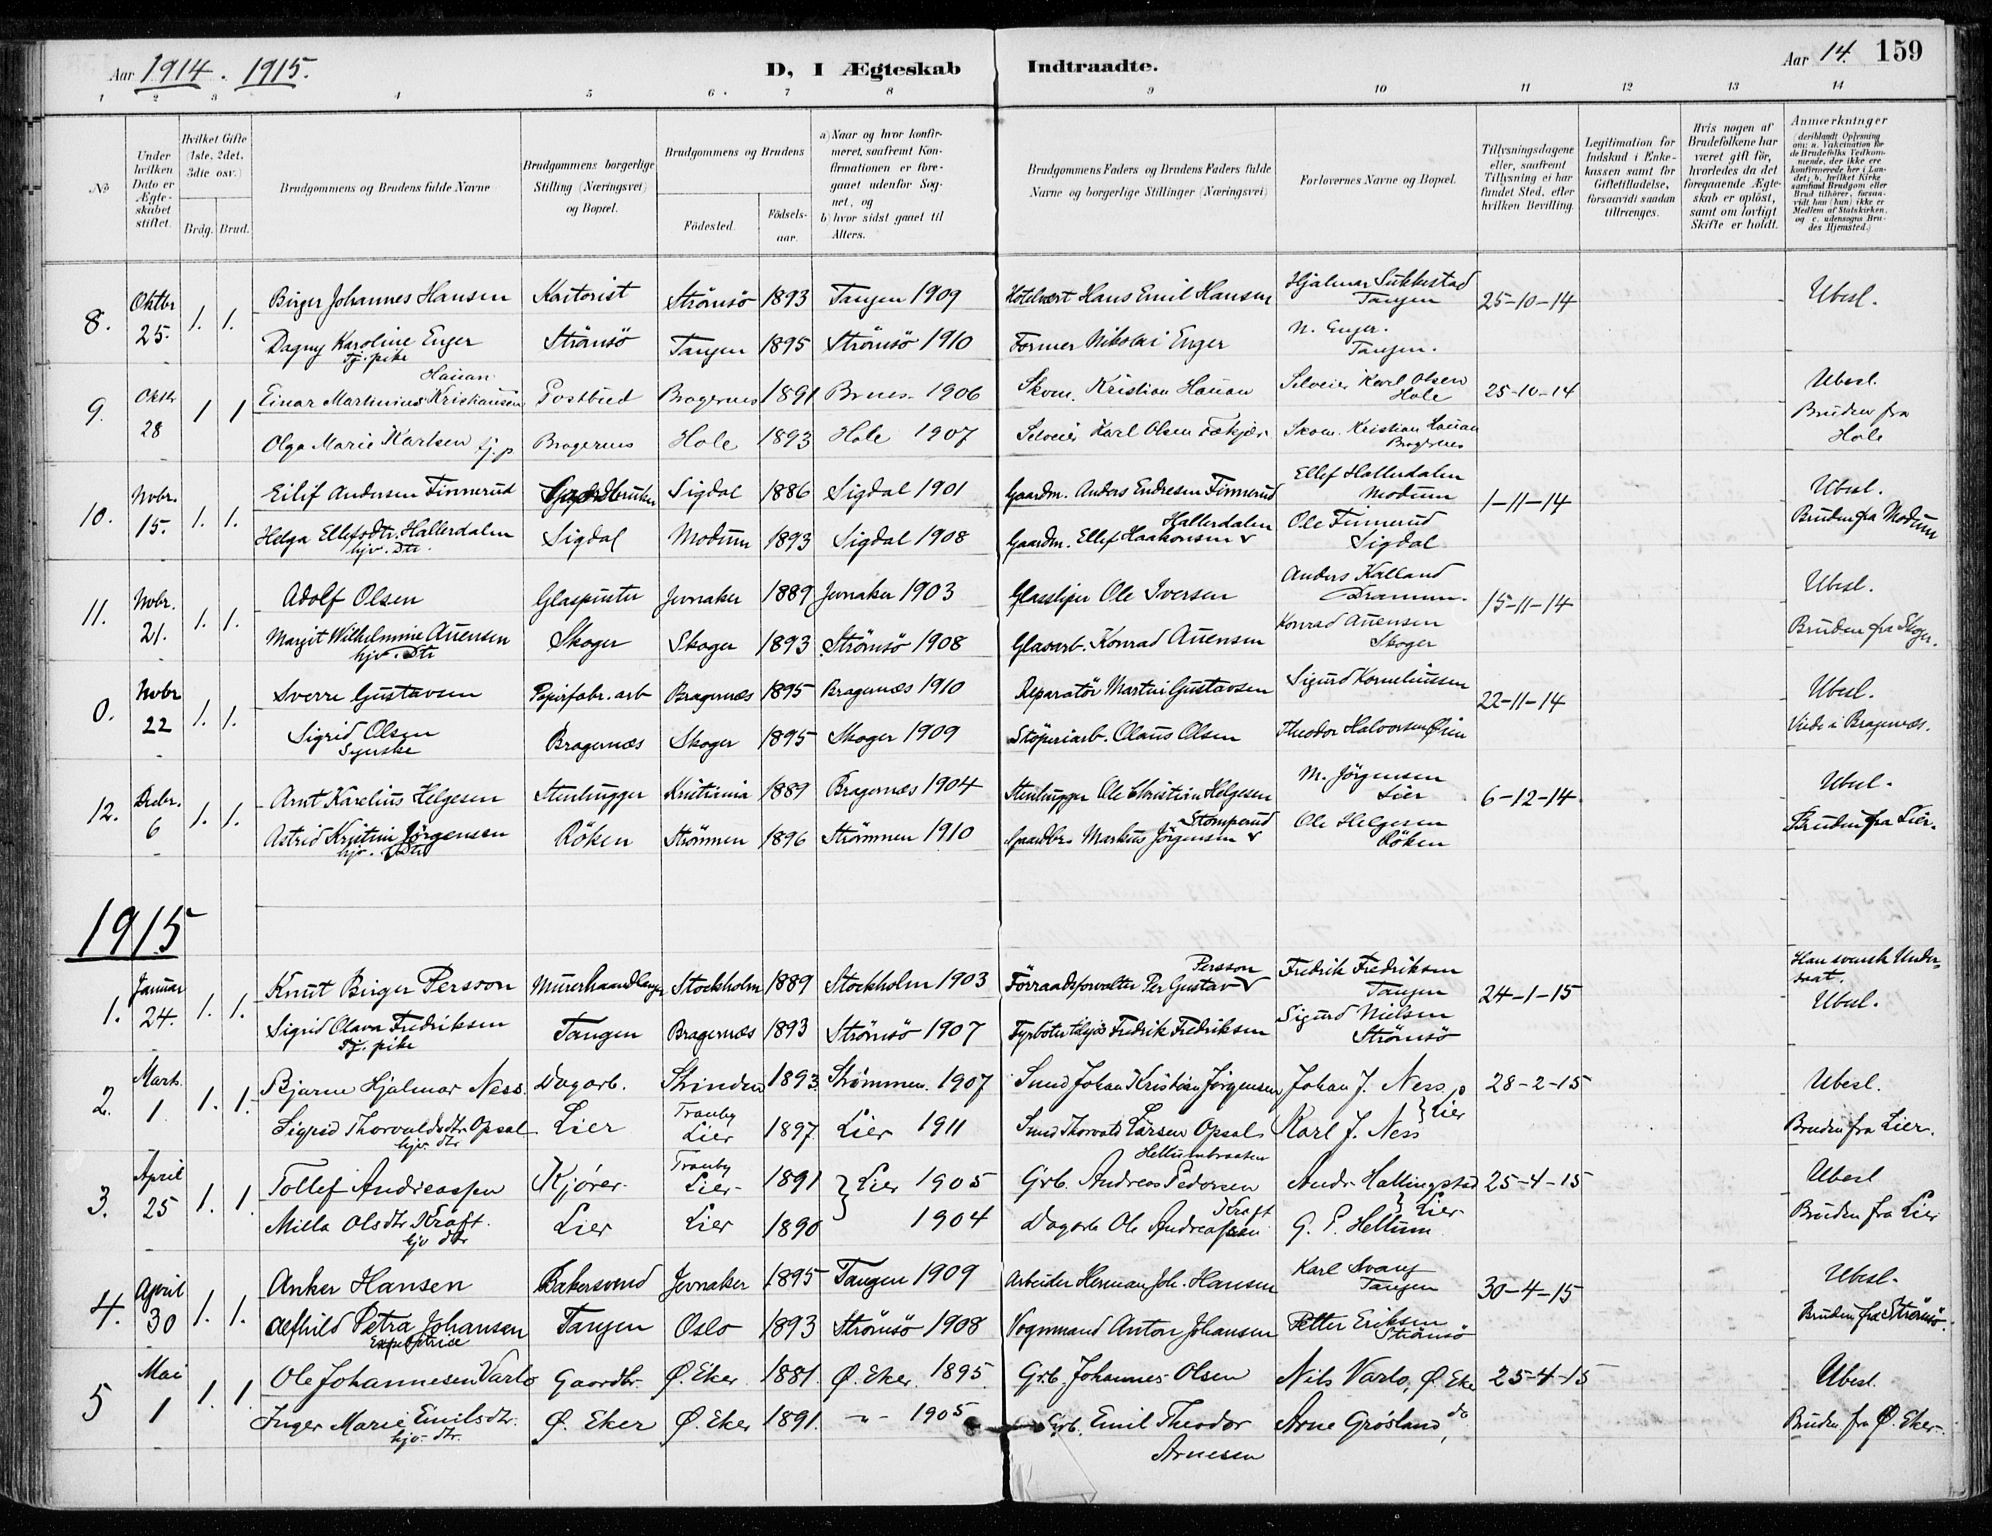 Aar 1914. 1915.
D, I Ægteskab Indtraadte.
Aar 14. 159
1 2 3 4 5 6. 7 8 9 10 11 12 13 14
No
Under hvilken Dato er Ægteskabet stiftet.
Hvilket Gifte (1ste, 2det, 3die osv.)
Brdg. Brud.
Brudgommens og Brudens fulde Navne
Brudgommens borgerlige Stilling (Næringsvei) og Bopæl.
Brudgommens og Brudens
Fødested.
Fødselsaar.
a) Naar og hvor konfirmeret, saafremt Konfirmationen er foregaaet udenfor Sognet, og
b) hvor sidst gaaet til Alters.
Brudgommens Faders og Brudens Faders fulde Navne og borgerlige Stillinger (Næringsvei)
Forlovernes Navne og Bopæl.
Tillysningsdagene eller, saafremt Tillysning ei har fundet Sted, efter hvilken Bevilling.
Legitimation for Indskud i Enkekassen samt for Giftetilladelse, forsaavidt saadan tiltrænges.
Hvis nogen af Brudefolkene har været gift før, hvorledes da det foregaaende Ægteskab er opløst, samt om lovligt Skifte er holdt.
Anmærkninger (deriblandt Oplysning om: a. Vakcination for de Brudefolks Vedkommende, der ikke ere konfirmerede her i Landet; b. hvilket Kirkesamfund Brudgom eller Brud tilhører, forsaavidt han (hun) ikke er Medlem af Statskirken, og c. udensogns Brudes Hjemsted.)
8. Oktbr 25. 1. 1. Birger Johannes Hansen Kontorist Strömsö 1893 Tangen 1909 Hotelvært Hans Emil Hansen Hjalmar Sukkestad Tangen 25-10-14 Ubesl.
Dagny Karoline Enger Tj. pike Strömsö Tangen 1895 Strömsö 1910 Former Nikolai Enger N. Enger. Tangen.
9. Oktbr 28 1 1 Einar Martinius Kristiansen Hauan Postbud Bragernes 1891 Brnes. 1906 Skom. Kristian Hauan Selveier Karl Olsen Hole 25-10-14 Ubesl.
Olga Marie Karlsen tj. p Bragernes Hole 1893 Hole 1907 Selveier Karl Olsen Fækjær Skom. Kristian Hauan Bragernes Bruden fra Hole
10. Novbr. 15. 1. 1. Eilif Andersen Finnerud Gaardbruker Sigdal 1886 Sigdal 1901 Gaardm. Anders Endresen Finnerud Ellef Hallerdalen Modum 1-11-14 Ubesl.
Helga Ellefsdtr. Hallerdalen hjv. Dtr. Sigdal Modum 1893 Sigdal 1908 Gaardm. Ellef Haakonsen Hallerdalen Ole Finnerud Sigdal Bruden fra Modum
11. Novbr. 21. 1. 1. Adolf Olsen Glaspuster Jevnaker 1889 Jevnaker 1903 Glassliper Ole Iversen Anders Kalland Drammen. 15-11-14 Ubesl.
Margit Wilhelmine Auensen hjv. Dtr Skoger Skoger 1893 Strömsö 1908 Glasarb. Konrad Auensen Konrad Auensen Skoger Bruden fra Skoger.
0. Novbr 22 1. 1. Sverre Gustavsen Papirfabr. arb Bragernæs 1895 Bragernæs 1910 Reparatör Martin Gustavsen Sigurd Korneliussen 22-11-14 Ubesl.
Sigrid Olsen Syerske Bragernæs Skoger 1895 Skoger 1909 Støperiarb. Olaus Olsen Theodor Halvorsen Øien Viede i Bragernæs.
12. Decbr. 6 1. 1. Arnt Karelius Helgesen Stenhugger Kristiania 1889 Bragernæs 1904 Stenhugger Ole Christian Helgesen M. Jörgensen Lier 6-12-14 Ubesl.
Astrid Kristine Jörgensen hjv. Dtr Röken Strömmen 1896 Strömmen 1910 Gaardbr. Markus Jörgensen Stomperud Ole Helgesen Röken Bruden fra Lier.
1915
1. Januar 24. 1. 1. Knut Birger Persson Murerhaandlanger Stockholm 1889 Stockholm 1903 Förraadsforvalter Per Gustav Persson Fredrik Fredriksen Tangen 24-1-15 Han svensk Undersaat. Ubesl.
Sigrid Olava Fredriksen Tj. pike Tangen Bragernæs 1893 Strömsö 1907 Fyrböter tilsjös Fredrik Fredriksen Sigurd Nielsen Strömsö
2. Marts. 1 1. 1. Bjarne Hjalmar Ness. Dagarb. Strinden 1893. Strømmen. 1907 Smed Johan Kristian Jørgensen Johan J. Ness 28-2-15 Ubesl.
Sigrid Thorvaldsdtr. Opsal hjv. dtr Lier Tranby Lier 1897. Lier 1911 Smed Thorvald Larsen Opsal Karl J. Ness } Lier Bruden fra Lier.
3. April 25 1. 1. Tollef Andreassen Kjører Tranby Lier 1891 } Lier 1905 Grb. Andreas Pedersen Hellumbraaten Andr. Hallingstad 25-4-15 Ubesl
Milla Olsdtr Kraft. hjv dtr Lier Lier 1890 1904 Dagarb Ole Andreassen Kraft G. P. Hellum } Lier Bruden fra Lier
4. April 30 1. 1. Anker Hansen Bakersvend Jevnaker 1895 Tangen 1909 Arbeider Herman Joh. Hansen Karl Svang Tangen 30-4-15 Ubesl.
Alfhild Petra Johansen Expeditrice Tangen Oslo 1893 Strömsö 1908 Vognmand Anton Johansen Petter Eriksen Strömsö Bruden fra Strömsö.
5 Mai 1 1. 1. Ole Johannesen Varlo Gaardbr. Ø. Eker 1881. Ø. Eker. 1895. Grb. Johannes Olsen Nils Varlo, Ø. Eker 25-4-15 Ubesl.
Inger Marie Emilsdtr. hjv. dtr. Ø. Eker Ø. Eker 1891. -"- 1905 Grb. Emil Theodor Arnesen Arne Grøsland, do Bruden fra Ø. Eker.